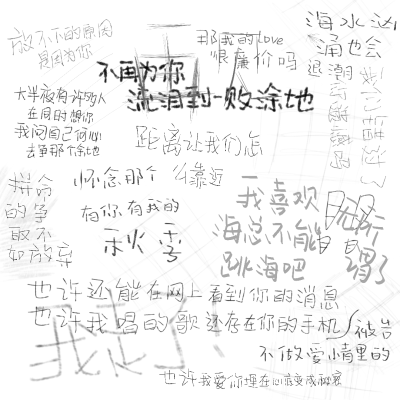 放不下的原因
是因为你
那我的love
很廉价吗
海水汹
涌也会
退潮
我们错过了
不再为你
流泪到一败涂地
大半夜有许多人
在同时想你
我问自己何必
去争那个余地
距离让我们怎
么靠近
拼命
的争
取不
如放弃
怀念那个
有你有我的
秋季
我喜欢
海总不能
跳海吧
无所
谓了
也许还能在网上看到你的消息
也许我唱的歌还存在你的手机
被告
不做爱情里的
我走了!
也许我爱你埋在心底变成秘密